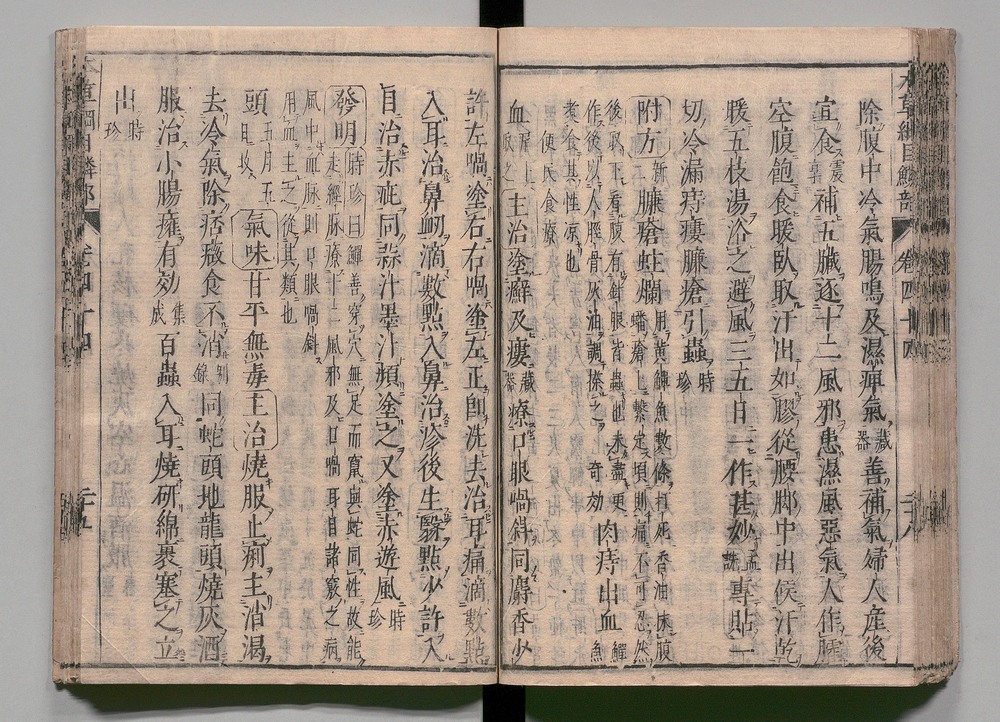 本草綱目鱗部 卷四十四
除腹中冷氣腸鳴及濕痺氣藏器善補氣婦人產後
宜食震亨補五臟逐十二風邪患濕風惡氣人作臛
空腹飽食暖臥取汗出如膠從腰脚中出候汗乾
暖五枝湯浴之避風三五日一作甚妙孟詵專貼一
切冷漏痔瘻臁瘡引蟲時珍
附方新二臁瘡蛀爛用黃鱓魚數條打死香油抹腹
蟠瘡上繫定頃則痛不可忍然
後取下看腹有針眼皆蟲也未盡更
作後以人脛骨灰油調搽之奇効肉痔出血鱓魚
煮食其性凉也
便民食療
血尾上取之主治塗癬及瘻藏器療口眼喎斜同麝香少
許左喎塗右右喎塗左正即洗去治耳痛滴數點
入耳治鼻衄滴數點入鼻治疹後生翳點少許入
目治赤疵同蒜汁墨汁頻塗之又塗赤遊風時珍
發明時珍曰鱓善穿穴無足而竄與蛇同性故能
走經脉療十二風邪及口喎耳目諸竅之病
風中血脉則口眼喎斜
用血主之從其類也
頭五月五日收氣味甘平無毒主治燒服止痢主消渴
去冷氣除痞癥食不消別錄同蛇頭地龍頭燒灰酒
服治小腸癰有効集成百蟲入耳燒研綿裹塞之立
出時珍
本草綱目鱗部 卷四十四